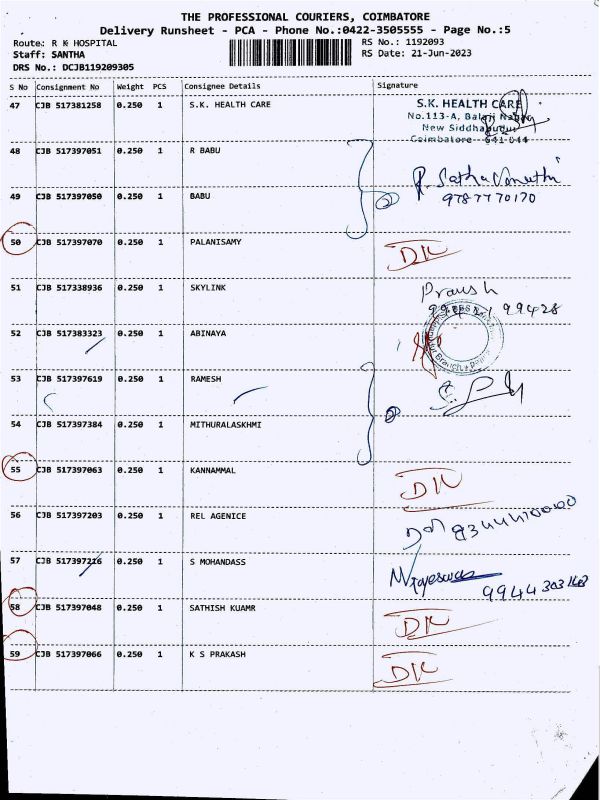 THE PROFESSIONAL COURIERS, COIMBATORE
Delivery Runsheet - PCA - Phone No.:0422-3505555 - Page No.:5
Route: R K HOSPITAL
RS No.: 1192093
Staff: SANTHA
RS Date: 21-Jun-2023
DRS No.: DCJB119209305
S No Consignment No Weight PCS Consignee Details Signature
47 CJB 517381258 0.250 1 S.K. HEALTH CARE
S.K. HEALTH CARE
No.113-A, Balaji Nagar
New Siddhapudur
Coimbatore 641 044
48 CJB 517397051 0.250 1 R BABU
49 CJB 517397050 0.250 1 BABU
9787770170
50 CJB 517397070 0.250 1 PALANISAMY DK
51 CJB 517338936 0.250 1 SKYLINK
52 CJB 517383323 0.250 1 ABINAYA
53 CJB 517397619 0.250 1 RAMESH
54 CJB 517397384 0.250 1 MITHURALASKHMI
55 CJB 517397063 0.250 1 KANNAMMAL DK
56 CJB 517397203 0.250 1 REL AGENICE
57 CJB 517397216 0.250 1 S MOHANDASS
58 CJB 517397048 0.250 1 SATHISH KUAMR DK
59 CJB 517397066 0.250 1 K S PRAKASH DK